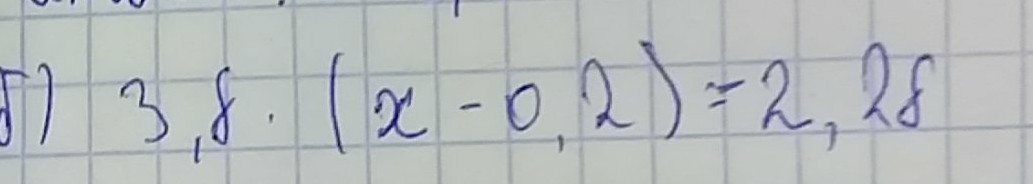 б) 3,8 · (x - 0,2) = 2,28